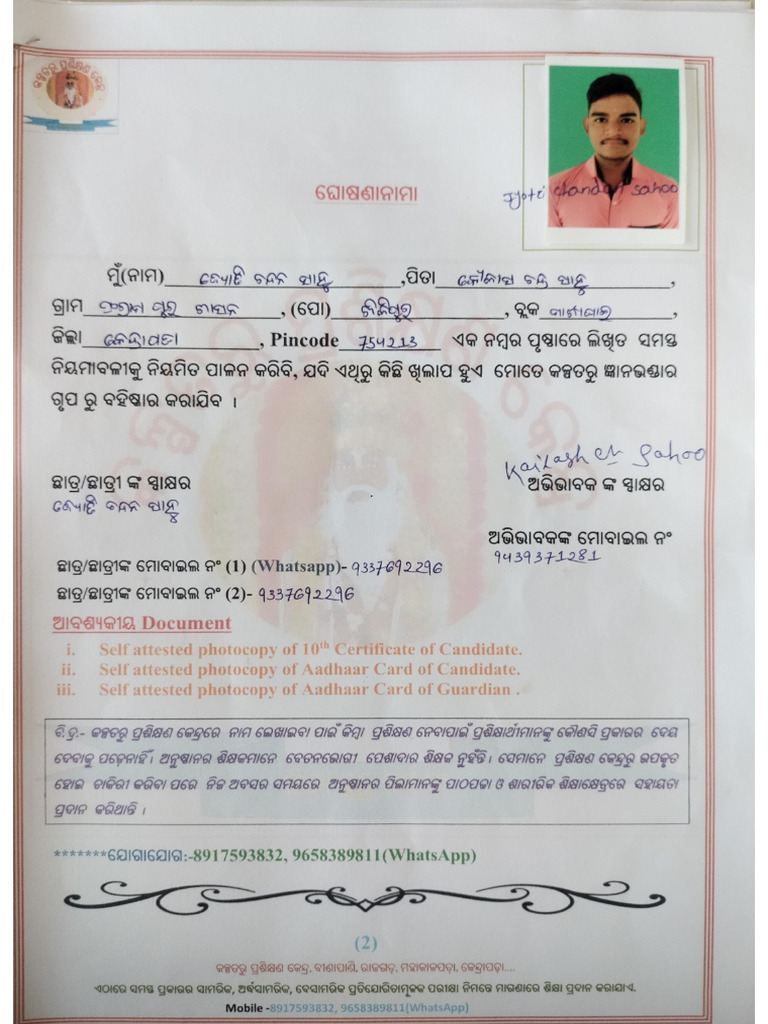 କଳ୍ପତରୁ ପ୍ରଶିକ୍ଷଣ କେନ୍ଦ୍ର
Jyoti chandan sahoo
ଘୋଷଣାନାମା
ମୁଁ(ନାମ) ଜ୍ୟୋତି ଚନ୍ଦନ ସାହୁ ,ପିତା କୈଳାସ ଚନ୍ଦ୍ର ସାହୁ ,
ଗ୍ରାମ ଶାସନ , (ପୋ) , ବ୍ଲକ ,
ଜିଲ୍ଲା କେନ୍ଦ୍ରାପଡା , Pincode 754213 ଏକ ନମ୍ବର ପୃଷ୍ଠାରେ ଲିଖିତ ସମସ୍ତ
ନିୟମାବଳୀକୁ ନିୟମିତ ପାଳନ କରିବି, ଯଦି ଏଥିରୁ କିଛି ଖିଲାପ ହୁଏ ମୋତେ କଳ୍ପତରୁ ଜ୍ଞାନଭଣ୍ଡାର
ଗୃପ ରୁ ବହିଷ୍କାର କରାଯିବ ।
Kailash ch Sahoo
ଛାତ୍ର/ଛାତ୍ରୀ ଙ୍କ ସ୍ୱାକ୍ଷର ଅଭିଭାବକ ଙ୍କ ସ୍ୱାକ୍ଷର
ଜ୍ୟୋତି ଚନ୍ଦନ ସାହୁ
ଅଭିଭାବକଙ୍କ ମୋବାଇଲ ନଂ
9439371281
ଛାତ୍ର/ଛାତ୍ରୀଙ୍କ ମୋବାଇଲ ନଂ (1) (Whatsapp)- 9337692296
ଛାତ୍ର/ଛାତ୍ରୀଙ୍କ ମୋବାଇଲ ନଂ (2)- 9337692296
ଆବଶ୍ୟକୀୟ Document
i. Self attested photocopy of 10th Certificate of Candidate.
ii. Self attested photocopy of Aadhaar Card of Candidate.
iii. Self attested photocopy of Aadhaar Card of Guardian .
ବି.ଦ୍ର.- କଳ୍ପତରୁ ପ୍ରଶିକ୍ଷଣ କେନ୍ଦ୍ରରେ ନାମ ଲେଖାଇବା ପାଇଁ କିମ୍ବା ପ୍ରଶିକ୍ଷଣ ନେବାପାଇଁ ପ୍ରଶିକ୍ଷାର୍ଥୀମାନଙ୍କୁ କୌଣସି ପ୍ରକାରର ଦେୟ
ଦେବାକୁ ପଡ଼େନାହିଁ। ଅନୁଷ୍ଠାନର ଶିକ୍ଷକମାନେ ବେତନଭୋଗୀ ପେଶାଦାର ଶିକ୍ଷକ ନୁହଁନ୍ତି। ସେମାନେ ପ୍ରଶିକ୍ଷଣ କେନ୍ଦ୍ରରୁ ଉପକୃତ
ହୋଇ ଚାକିରୀ କରିବା ପରେ ନିଜ ଅବସର ସମୟରେ ଅନୁଷ୍ଠାନର ପିଲାମାନଙ୍କୁ ପାଠପଢା ଓ ଶାରୀରିକ ଶିକ୍ଷାକ୍ଷେତ୍ରରେ ସହାୟତା
ପ୍ରଦାନ କରିଥାନ୍ତି ।
*******ଯୋଗାଯୋଗ:-8917593832, 9658389811(WhatsApp)
(2)
କଳ୍ପତରୁ ପ୍ରଶିକ୍ଷଣ କେନ୍ଦ୍ର, ବୀଣାପାଣି, ରାଜଗଡ଼, ମହାକାଳପଡ଼ା, କେନ୍ଦ୍ରାପଡ଼ା....
ଏଠାରେ ସମସ୍ତ ପ୍ରକାରର ସାମରିକ, ଅର୍ଦ୍ଧସାମରିକ, ବେସାମରିକ ପ୍ରତିଯୋଗିତାମୂଳକ ପରୀକ୍ଷା ନିମନ୍ତେ ମାଗଣାରେ ଶିକ୍ଷା ପ୍ରଦାନ କରାଯାଏ.
Mobile -8917593832, 9658389811(WhatsApp)